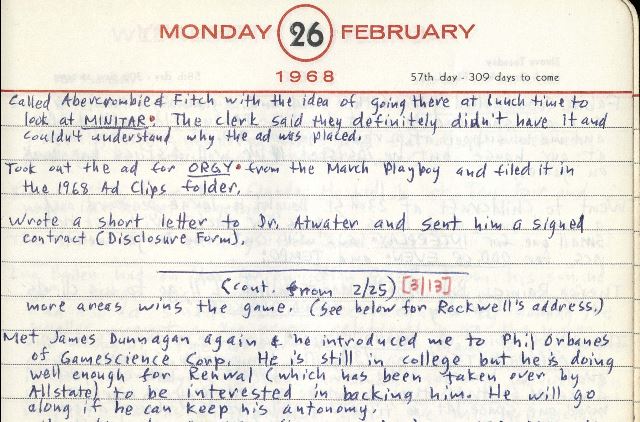 MONDAY 26 FEBRUARY
1968 57th day - 309 days to come
Called Abercrombie & Fitch with the idea of going there at lunch time to
look at MINITAR. The clerk said they definitely didn't have it and
couldn't understand why the ad was placed.
Took out the ad for ORGY from the March Playboy and filed it in
the 1968 Ad Clips folder.
Wrote a short letter to Dr. Atwater and sent him a signed
contract (Disclosure Form).
(cont. from 2/25) [3/13]
more areas wins the game. (See below for Rockwell's address.)
Met James Dunnagan again & he introduced me to Phil Orbanes
of Gamescience Corp. He is still in college but he is doing
well enough for Renwal (which has been taken over by
Allstate) to be interested in backing him. He will go
along if he can keep his autonomy.